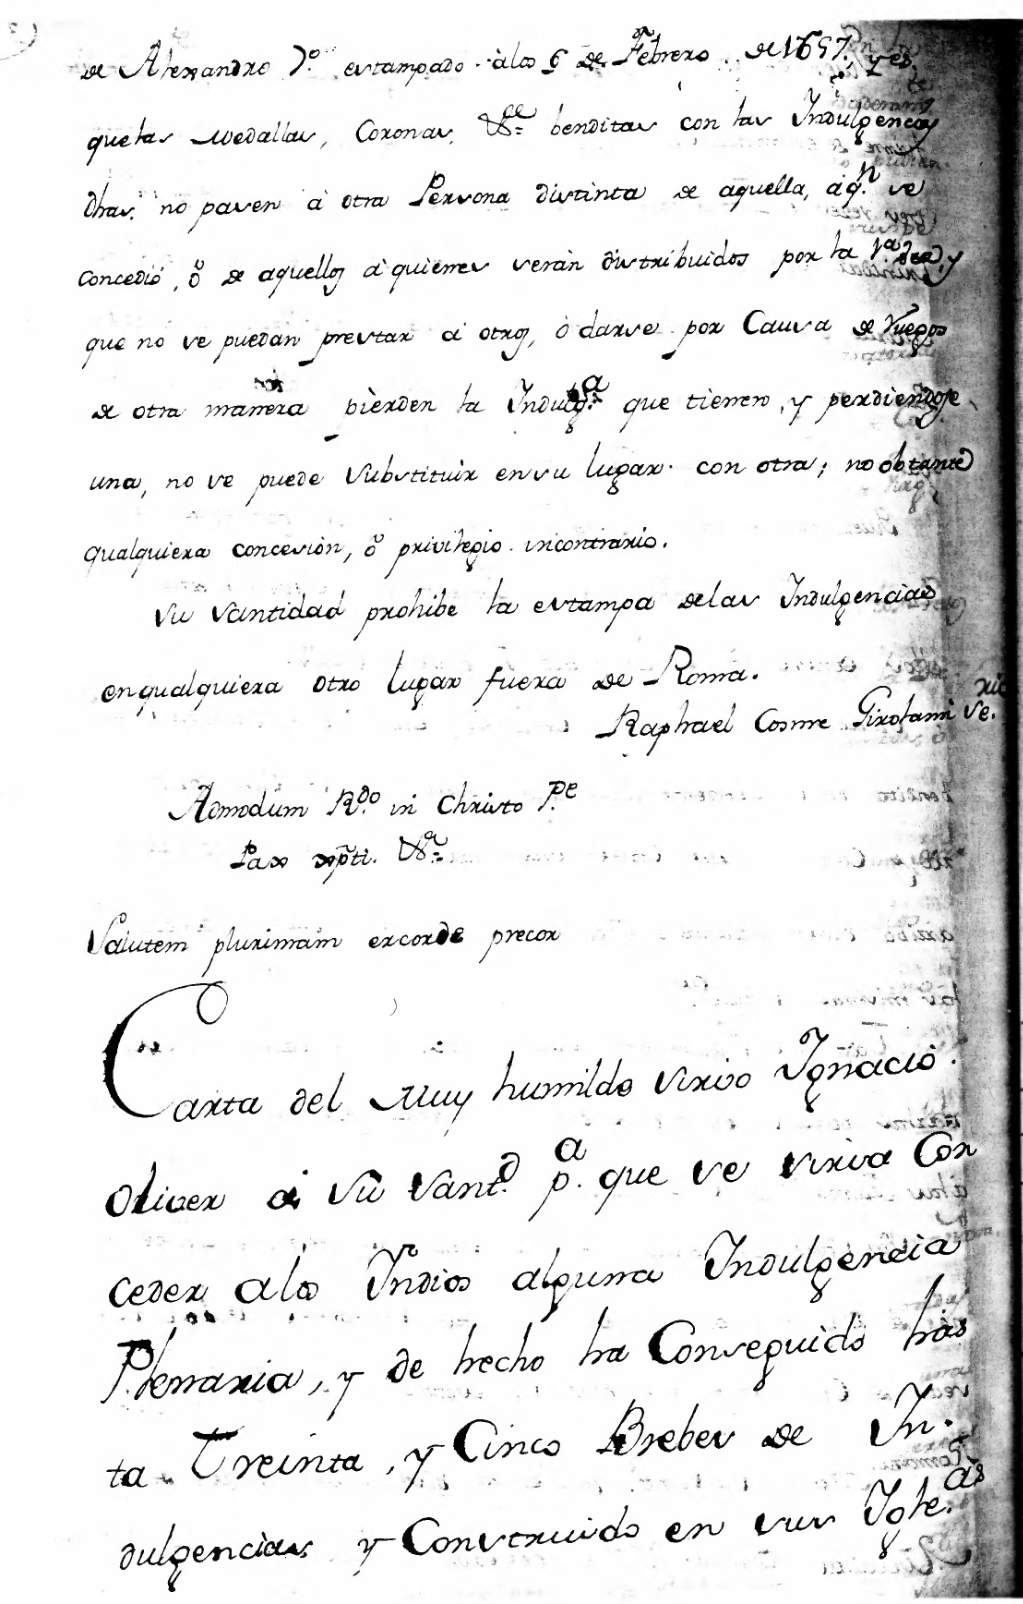 de Alexandro 7.º estampado alos 6 de Febrero de 1657. y es.
quelas Medallas, Coronas, &ce benditas con las Indulgencias
dhas. no pasen à otra Persona distinta de aquella, áq.n se
concedió, ô de aquellos à quienes seràn distribuidos por la 1.a vez y
que no se puedan prestar à otros, ò darse por Causa de Ruegos
de otra manera pièrden la Indulg.a que tienen, y perdiendose
una, no se puede Substituir ensu lugar con otra; no obstante
qualquiera concesiòn, ô privilegio incontrario.
Su Santidad prohibe la estampa delas Indulgencias
enqualquiera otro lugar fuera de Roma.
Raphael Cosme Girolami Se.rio
Admodum R.do in Christo P.e
Pax xpti. &a
Salutem plurimam excorde precor
Carta del Muy humilde sirvo Ygnacio
Oliver a Su Sant.d p.a que se sirva Con
ceder alos Yndios alguna Yndulgencia
Plenaria, y de hecho ha Conseguido has
ta Treinta, y Cinco Brebes de Yn-
dulgencias y Construido en sus Ygle.as